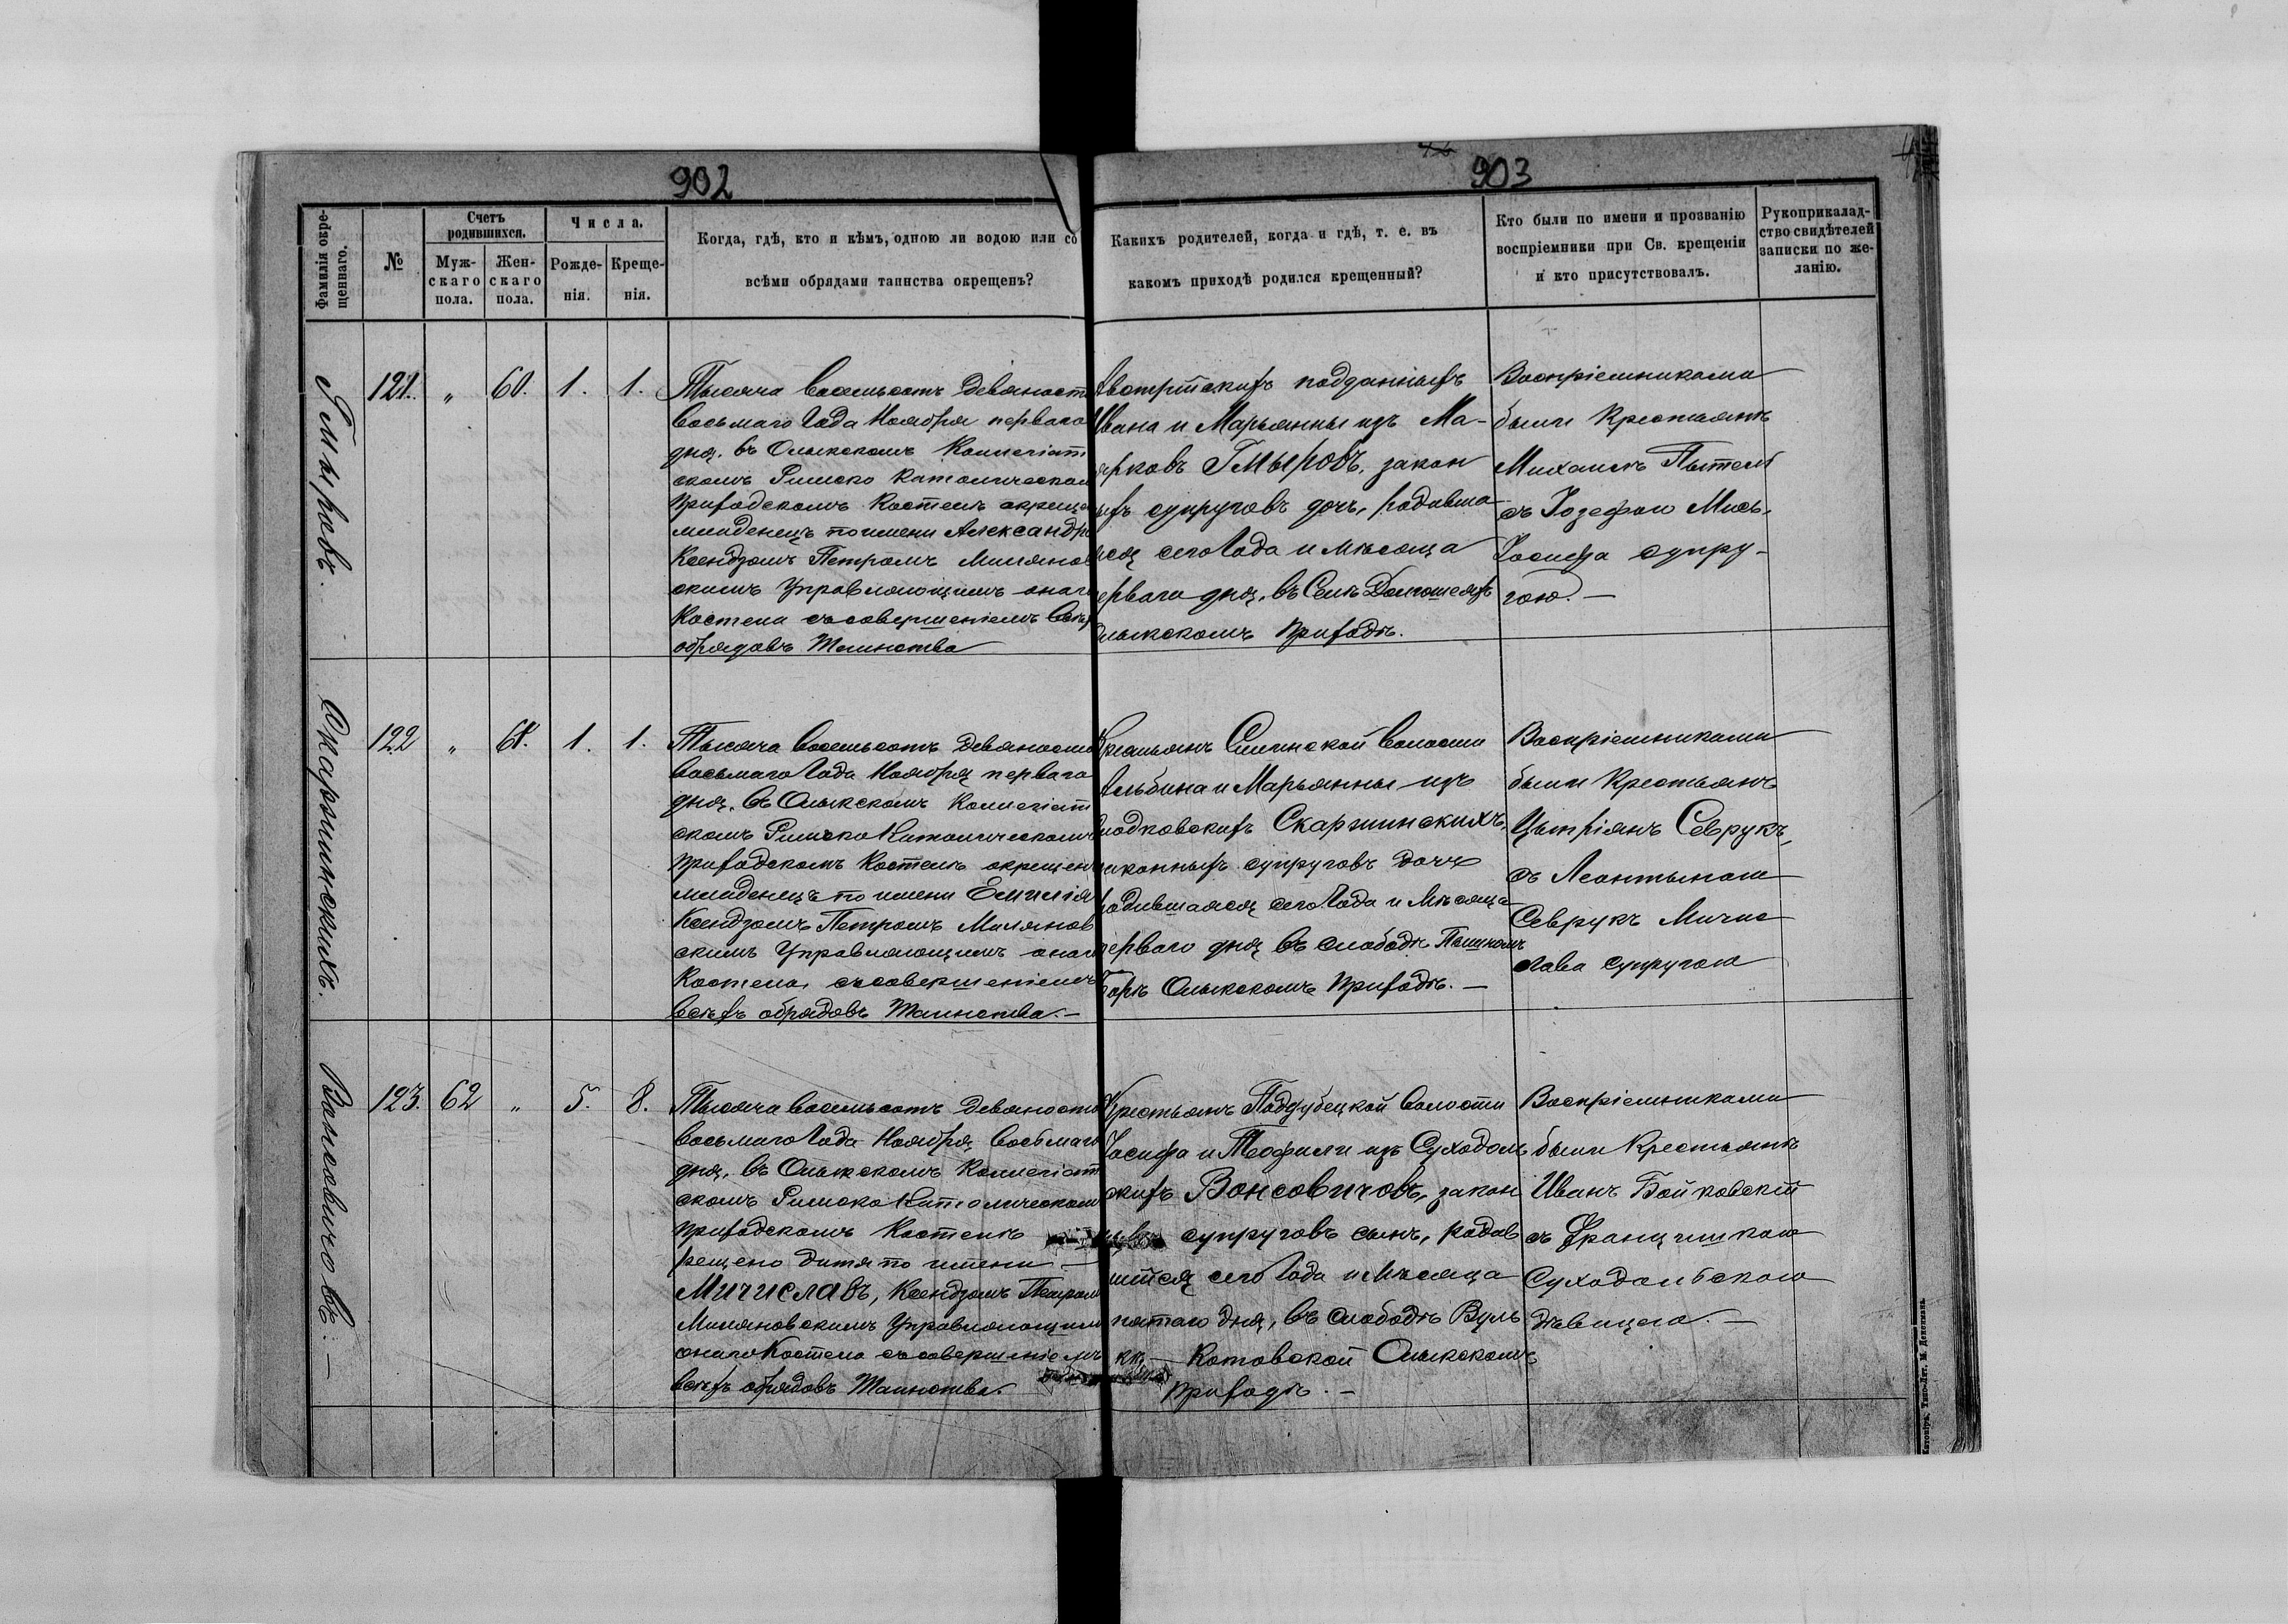 902
903
Фамилія окре-
щеннаго.
№
Счетъ
родившихся.
Муж-
скаго
пола.
Жен-
скаго
пола.
Числа.
Рожде-
нія.
Креще-
нія.
Когда, гдѣ, кто и кѣмъ, одною ли водою или со
всѣми обрядами таинства окрещенъ?
Какихъ родителей, когда и гдѣ, т. е. въ
какомъ приходѣ родился крещенный?
Кто были по имени и прозванію
воспріемники при Св. крещеніи
и кто присутствовалъ.
Рукоприкалад-
ство свидѣтелей
записки по же-
ланію.
Гмыровъ.
121. „ 60. 1. 1.
Тысяча восемьсотъ девяност
восьмаго года Ноября перваго
дня, въ Олыкскомъ Коллегіат
скомъ Римско Католическом
приходскомъ Костелѣ окреще
младенецъ по имени Александр
Ксендзомъ Петромъ Милянов
скимъ Управляющимъ онаго
Костела съ совершеніемъ всѣхъ
обрядовъ Таинства
Австрійскихъ подданныхъ
Ивана и Марьянны изъ Ма-
рковъ Гмыровъ, закон
ыхъ супруговъ дочь, родивша
яся сего года и мѣсяца
ерваго дня, въ Селѣ Долгошеяхъ
Олыкскомъ приходѣ.
Воспріемниками
были Крестьянѣ
Михаилъ
съ Іозефою Мись,
Іосифа супру-
гою. —
Скаржинскихъ.
122 „ 61. 1. 1.
Тысяча восемьсотъ девяносто
восьмаго года Ноября перваго
дня, въ Олыкскомъ Коллегіат
скомъ Римско Католическомъ
приходскомъ Костелѣ окрещен
младенецъ по имени Емилія
Ксендзомъ Петромъ Милянов
скимъ Управляющимъ онаго
Костела, съ совершеніемъ
всѣхъ обрядовъ Таинства. —
Крестьянъ Силинской волости
Альбина и Марьянны изъ
Скаржинскихъ,
законныхъ супруговъ дочь
родившаяся сего года и мѣсяца
перваго дня въ слободѣ
Борѣ Олыкскомъ приходѣ. —
Воспріемниками
были Крестьянѣ
Севрукъ,
съ Леонтыною
Севрукъ Мичис
лава супругою
Вонсовичовъ. —
123. 62 „ 5. 8.
Тысяча восемьсотъ девяносто
восьмаго года Ноября восьмаго
дня, въ Олыкскомъ Коллегіат
скомъ Римско Католическом
приходскомъ Костелѣ
рещено дитя по имени —
Мичиславъ, Ксендзомъ Петром
Миляновскимъ Управляющим
онаго Костела съ совершеніемъ
всѣхъ обрядовъ Таинства.
Крестьянъ Поддубецкой волости
Іосифа и Теофили изъ Суходоль
скихъ Вонсовичовъ, закон
супруговъ сынъ, родив
шійся сего года и мѣсяца
пятаго дня, въ слободѣ Вуль
кѣ — Котовской Олыкскомъ
приходѣ. —
Воспріемниками
были Крестьянѣ
Иванъ Бойковскій
съ Францишкою
Суходольскою
дѣвицею. —
Житоміръ, Типо-Лит. М. Дененмана.